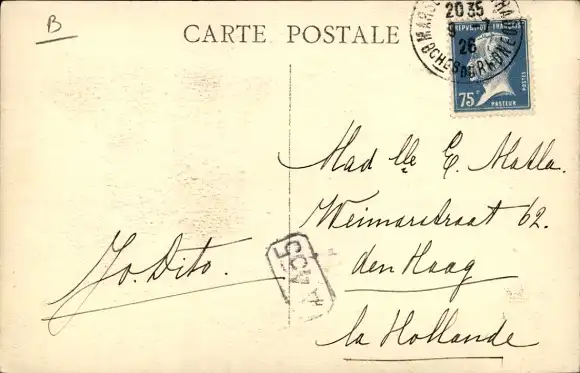 B
CARTE POSTALE
20 35
26
BCHES DU RHONE
REPUBLIQUE FRANÇAISE
75c
POSTES
PASTEUR
Madlle E. Matla.
Weimarstraat 62.
den Haag
la Hollande
Jo. Dito.